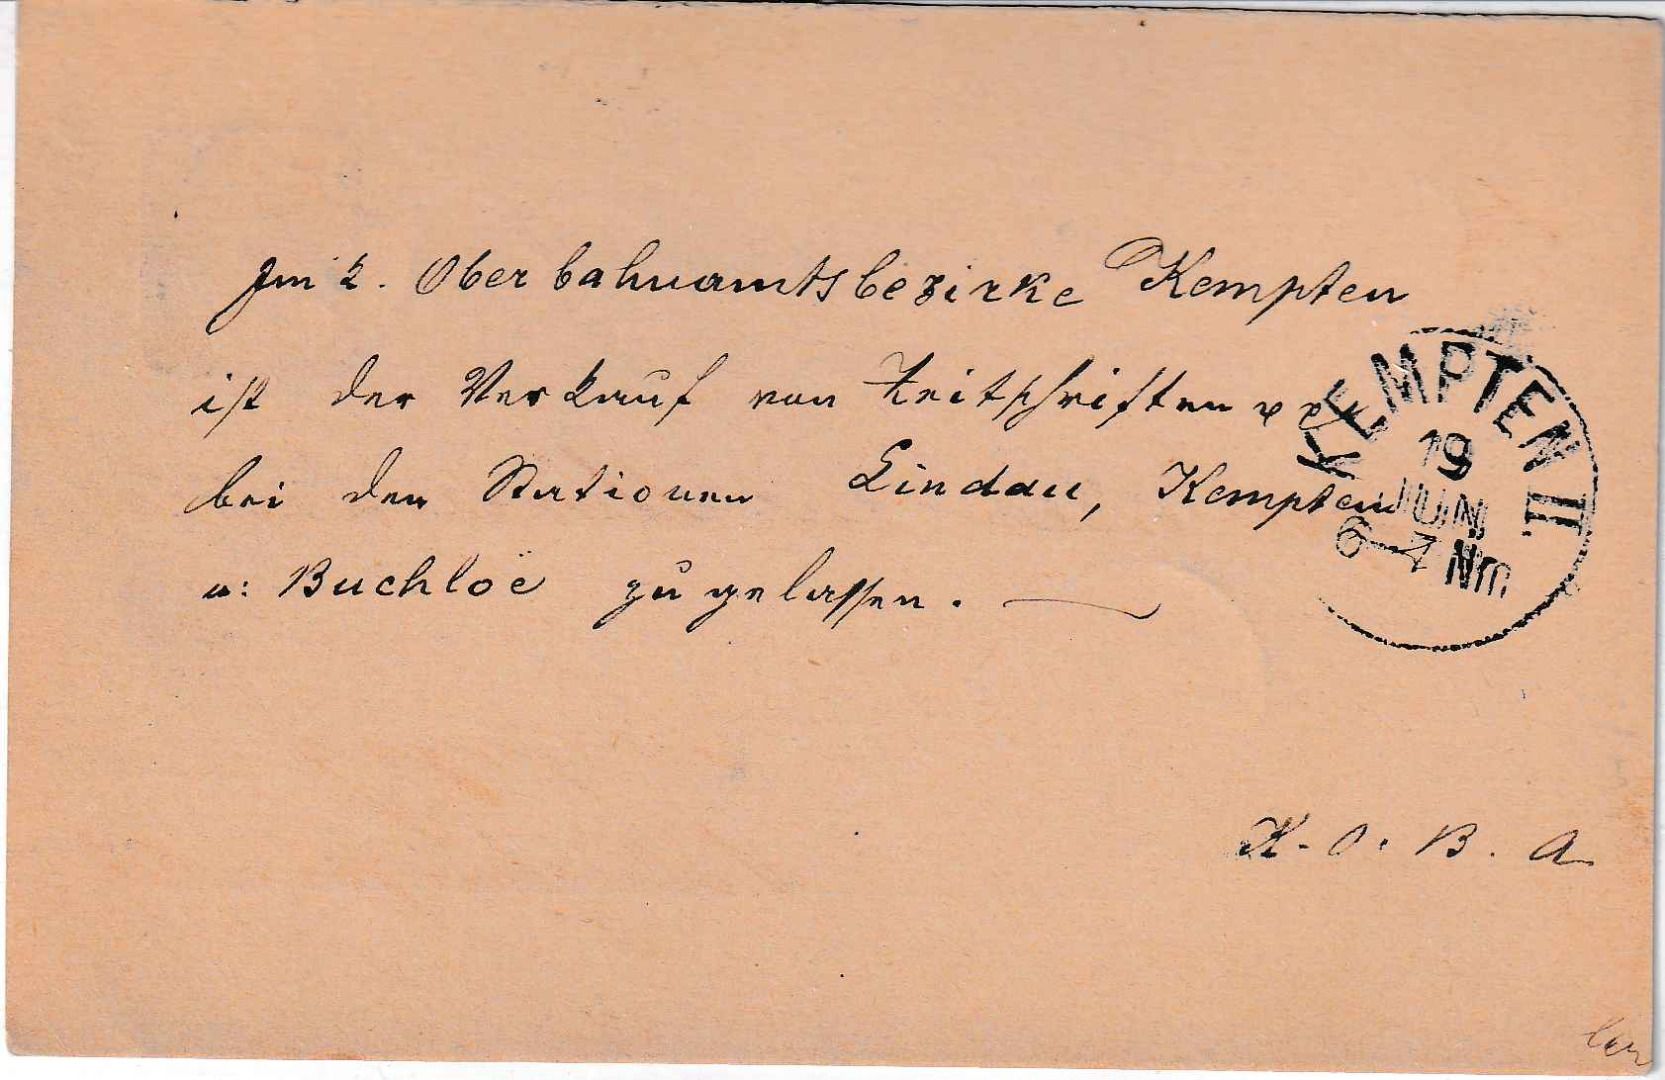 Im k. Oberbahnamtsbezirke Kempten
ist der Verkauf von Zeitschriften pp
bei den Stationen Lindau, Kempten
u: Buchloë zugelassen. —
KEMPTEN II.
19
JUN
6-7 Nm
K. O. B. A